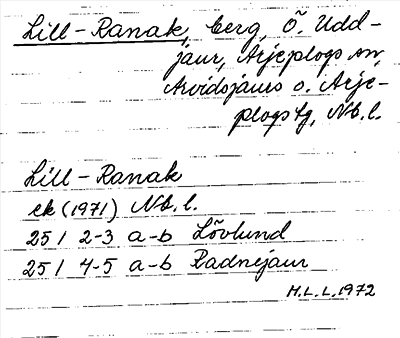 Lill-Ranak, berg, Ö. Udd-
jaur, Arjeplogs sn,
Arvidsjaurs o. Arje-
plogs tg, Nb. l.
Lill-Ranak
ek (1971) Nb. l.
25 I 2-3 a-b Lövlund
25 I 4-5 a-b Radnejaur
H.L.L. 1972